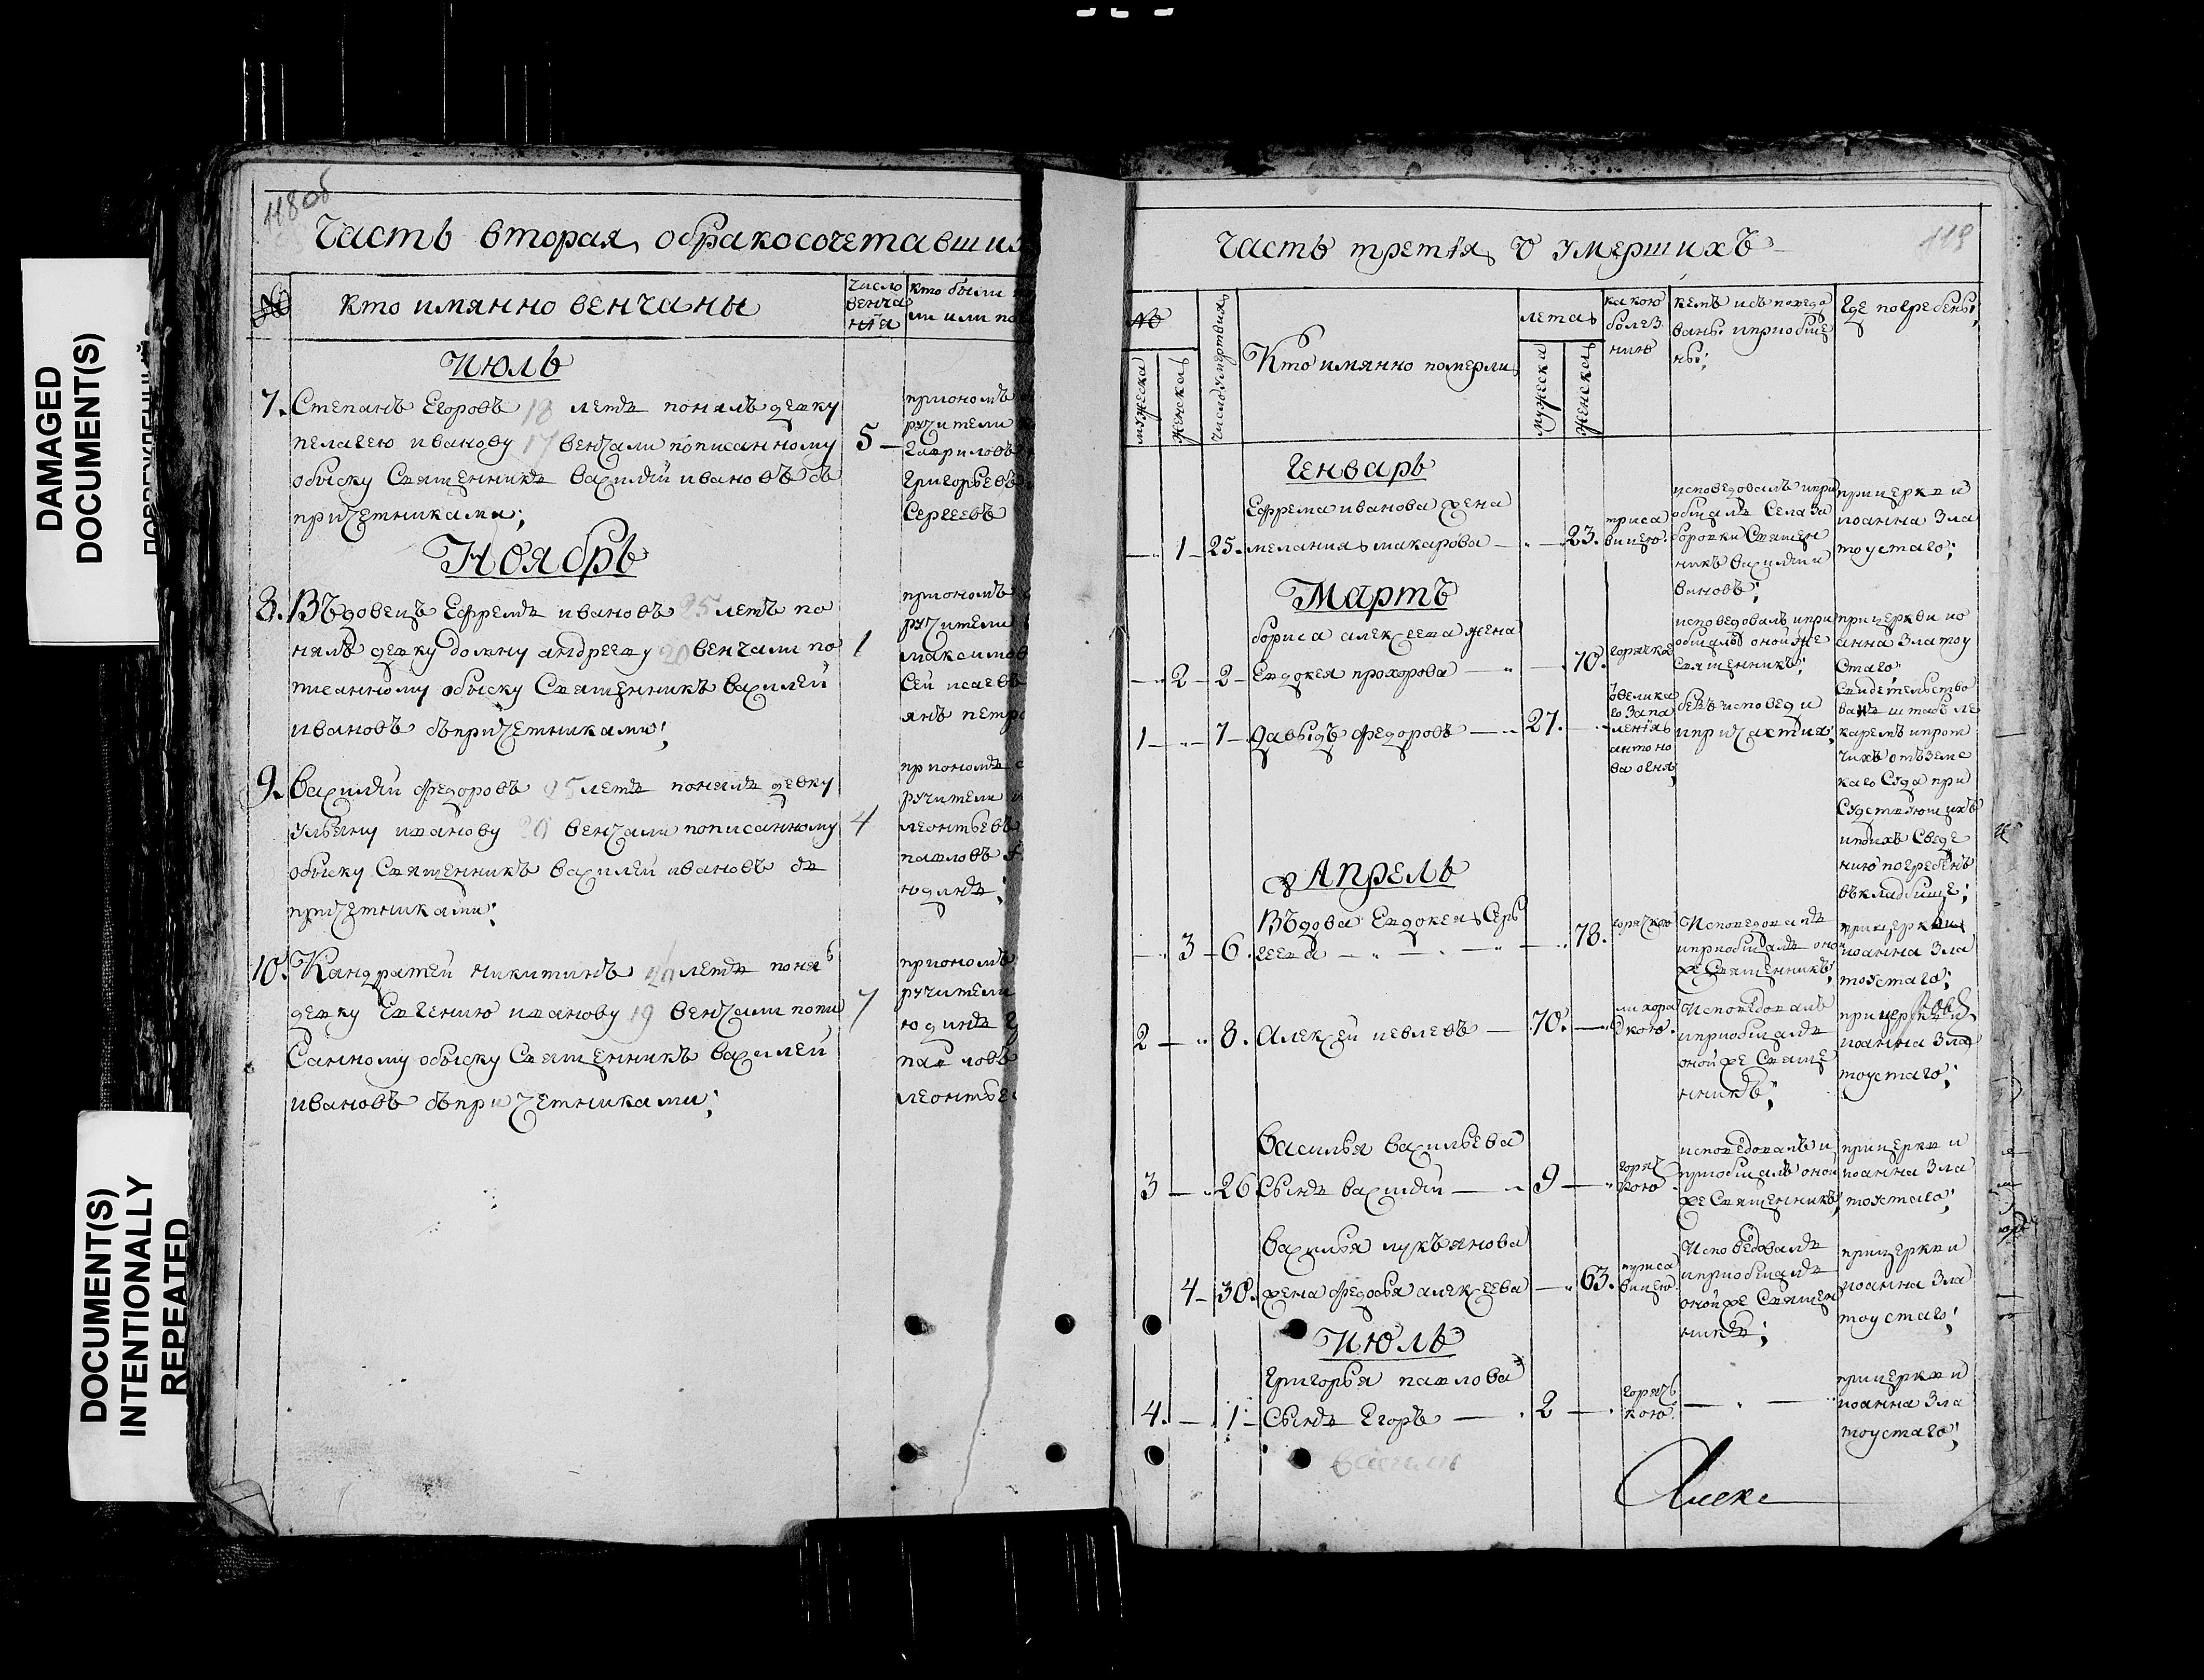 DAMAGED
DOCUMENT(S)
DOCUMENT(S)
INTENTIONALLY
REPEATED
118об
Часть вторая, обракосочетавших
№
кто имянно венчаны
число
венча
нїя
кто были
ми или по
Июль
7. Степанъ Егоровъ 18 летъ понялъ девку
пелагею иванову 17 венчали пописанному
обыску Священникъ василий ивановъ съ
причетниками;
5
приономъ
ручители
Гавриловъ
Григорьевъ
Сергеевъ
Ноябрь
8. Въдовецъ Ефремъ ивановъ 25 летъ по
нялъ девку домну андрееву 20 венчали по
писанному обыску Священникъ василей
ивановъ съпричетниками;
1
приономъ
ручители
максимов
сей исаевъ
янъ петро
9. василий федоровъ 25 летъ понялъ девку
ульяну иванову 20 венчали пописанному
обыску Священникъ василей ивановъ съ
причетниками;
4
приономъ
ручители
леонтьевъ
павловъ
юдинъ;
10. Кандратей никитинъ 20 летъ поня
девку Евгению иванову 19 венчали попи
Санному обыску Священникъ василей
ивановъ съпричетниками;
7
приономъ
ручители
юдинъ
павловъ
леонтье
119
Часть третїя, о умершихъ
№
мужеска
женска
число смертвия
Кто имянно померли
лета
мужеска
женска
какою
болез
нию
кемъ исъповедо
ваны иприобще
ны;
где погребены;
Генварь
Ефрема иванова жена
1 25. мелания макарова 23.
триса
вицею
исповедовалъ ипри
общалъ Села За
боровки Священ
никъ василий и
вановъ;
прицеркви
иоанна Зла
тоустаго;
Мартъ
бориса алексеева жена
2 2 Евдокея прохорова 70.
горячкою
исповедовалъ ипри
общалъ оной же
священникъ;
прицеркви ио
анна Златоу
стаго;
1 7 Давыдъ федоровъ 27.
овелика
го Запа
ленїя
антоно
ва огня;
безъ исповеди
ипричастия;
Свидетельство
ванъ штабъ ле
каремъ ипроч
чихъ отъземс
каго Суда при
Судствующихъ
ипоихъ Сведе
нию погребенъ
въкладбище;
Апрель
Въдова Евдокея Сер
3 6. геева 78.
горячкою
Исповедовалъ
иприобщалъ оной
же Священникъ;
прицеркви
иоанна Зла
тоустаго;
2 8. Алексей иевлевъ 70.
лихора
дкою.
Исповедовалъ
иприобщалъ
оной же Свяще
нникъ;
прицеркви
иоанна Зла
тоустаго;
Василья васильева
3 26 Сынъ василий 9
горяч
кою
исповедовалъ и
приобщалъ оной
же Священникъ;
прицеркви
иоанна Зла
тоустаго;
василья лукъянова
4 30. жена федосья алексеева 63.
триса
вицею
Исповедовалъ
иприобщалъ
оной же Священ
никъ;
прицеркви
иоанна Зла
тоустаго;
Июль
Григорья павлова
4. 1 Сынъ Егоръ 2
горяч
кою.
прицеркви
иоанна Зла
тоустаго;
Алекс